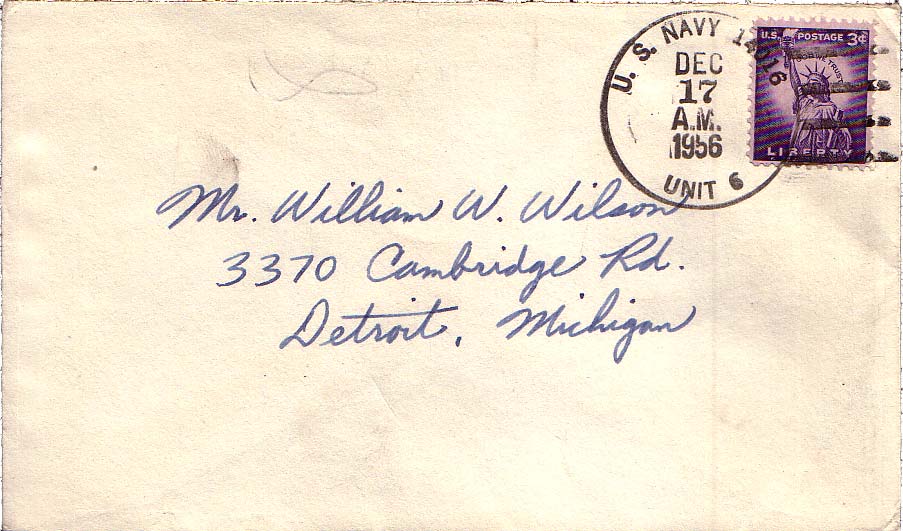 U. S. NAVY 14016
DEC
17
A.M.
1956
UNIT 6
U.S. POSTAGE 3¢
IN GOD WE TRUST
LIBERTY
Mr. William W. Wilson
3370 Cambridge Rd.
Detroit, Michigan